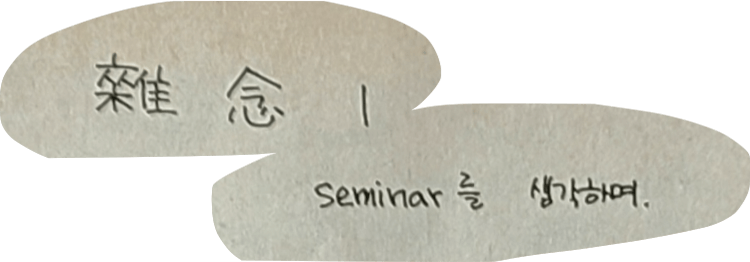 雜念 1
seminar를 생각하며.